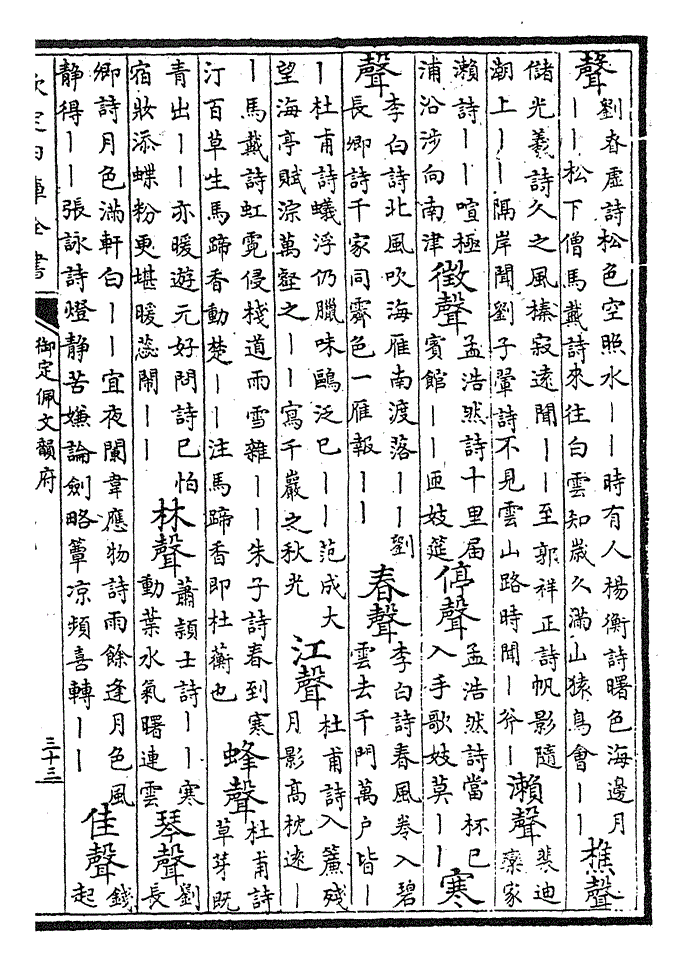 聲劉眘虛詩松色空照水丨丨時有人楊衡詩曙色海邊月丨丨松下僧馬戴詩來往白雲知歲久滿山猿鳥會丨丨樵聲
儲光羲詩久之風榛寂遠聞丨丨至郭祥正詩帆影隨潮上丨丨隔岸聞劉子翬詩不見雲山路時聞丨斧丨瀨聲裴迪欒家
瀨詩丨丨喧極浦沿涉向南津徵聲孟浩然詩十里屆賓館丨丨匝妓筵停聲孟浩然詩當杯已入手歌妓莫丨丨寒
聲李白詩北風吹海雁南渡落丨丨劉長卿詩千家同霽色一雁報丨丨春聲李白詩春風卷入碧雲去千門萬户皆丨
丨杜甫詩蟻浮仍臘味鷗泛已丨丨范成大望海亭賦淙萬壑之丨丨寫千巖之秋光江聲杜甫詩入簾殘月影高枕遠丨
丨馬戴詩虹霓侵棧道雨雪雜丨丨朱子詩春到寒汀百草生馬蹄香動楚丨丨注馬蹄香即杜蘅也蜂聲杜甫詩草芽既
青出丨丨亦暖遊元好問詩已怕宿妝添蝶粉更堪暖蕊鬧丨丨林聲蕭穎士詩丨丨寒動葉水氣曙連雲琴聲劉長
卿詩月色滿軒白丨丨宜夜闌韋應物詩雨餘逢月色風静得丨丨張詠詩燈静苦嫌論劍略簟凉頻喜轉丨丨佳聲錢起
欽定四庫全書
御定佩文韻府
三十三